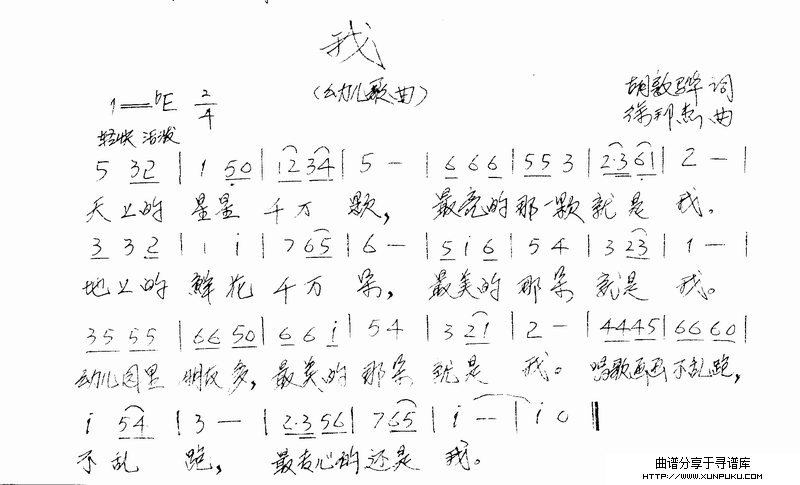 我
(幼儿歌曲)
1=bE 2/4
胡敦骅 词
徐邦杰 曲
轻快 活泼
5 32 | 1 50 | 12 34 | 5 - | 6 6 6 | 55 3 | 2·3 61 | 2 - |
天上的 星星 千万 颗， 最亮的那一颗就是 我。
3 3 2 | 1 i | 7 65 | 6 - | 5 i 6 | 5 4 | 3 23 | 1 - |
地上的 鲜花 千万 朵， 最美的 那朵 就是 我。
35 55 | 66 50 | 6 6 i | 5 4 | 3 21 | 2 - | 4445 | 66 60 |
幼儿园里 朋友多， 最美的 那朵 就是 我。 唱歌画画不乱跑，
i 54 | 3 - | 2·3 56 | 7 65 | i - | i 0 ‖
不乱 跑， 最专心的还是 我。
曲谱分享于寻谱库
HTTP://WWW.XUNPUKU.COM